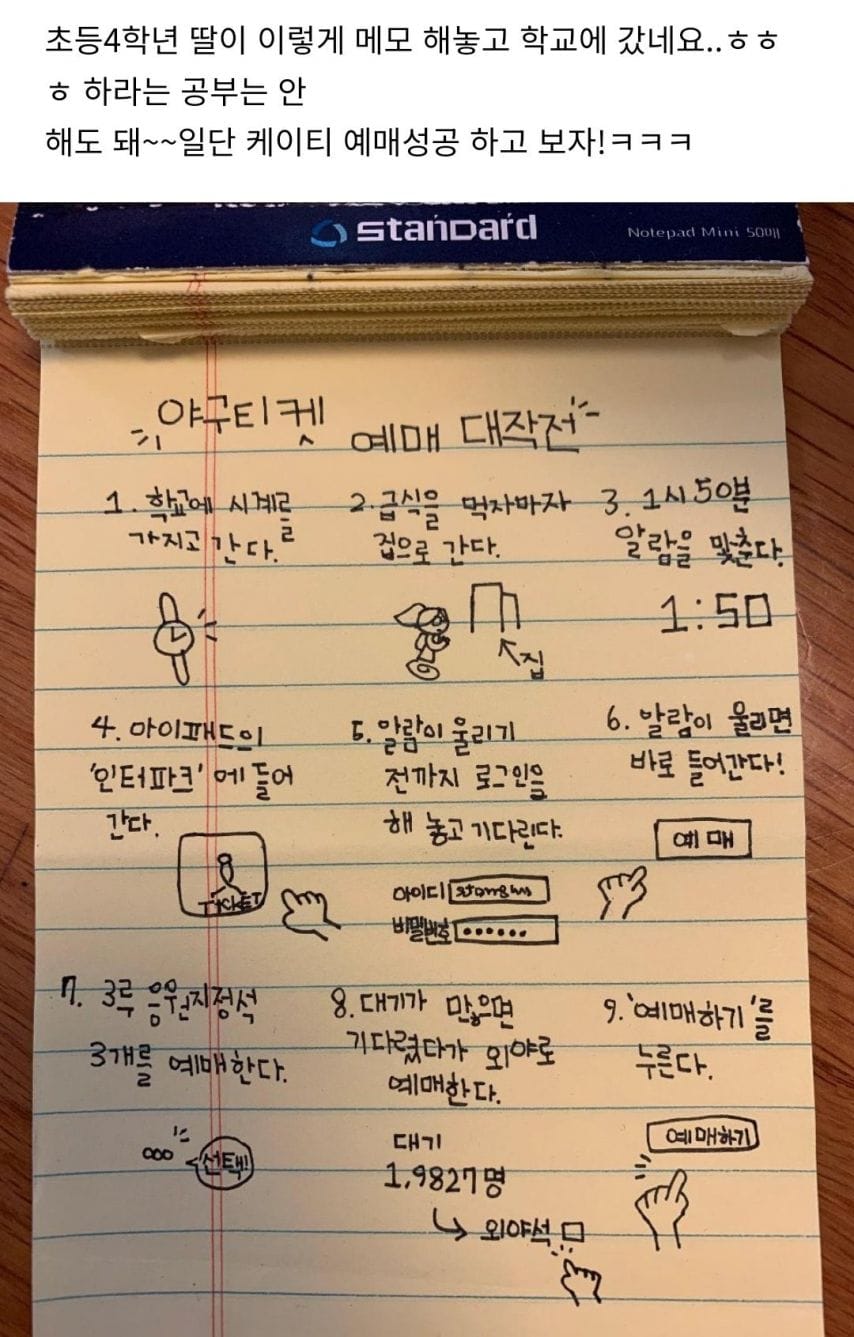 초등4학년 딸이 이렇게 메모 해놓고 학교에 갔네요..ㅎㅎ
ㅎ 하라는 공부는 안
해도 돼~~일단 케이티 예매성공 하고 보자!ㅋㅋㅋ
standard
Notepad Mini 50매
야구티켓 예매 대작전
1. 학교에 시계를
가지고 간다.
2. 급식을 먹자마자
집으로 간다.
집
3. 1시 50분
알람을 맞춘다.
1:50
4. 아이패드의
'인터파크'에 들어
간다.
TICKET
5. 알람이 울리기
전까지 로그인을
해 놓고 기다린다.
아이디
비밀번호 ••••••
6. 알람이 울리면
바로 들어간다!
예매
7. 3루 응원지정석
3개를 예매한다.
선택!
8. 대기가 많으면
기다렸다가 외야로
예매한다.
대기
1,9827명
외야석
9. '예매하기'를
누른다.
예매하기